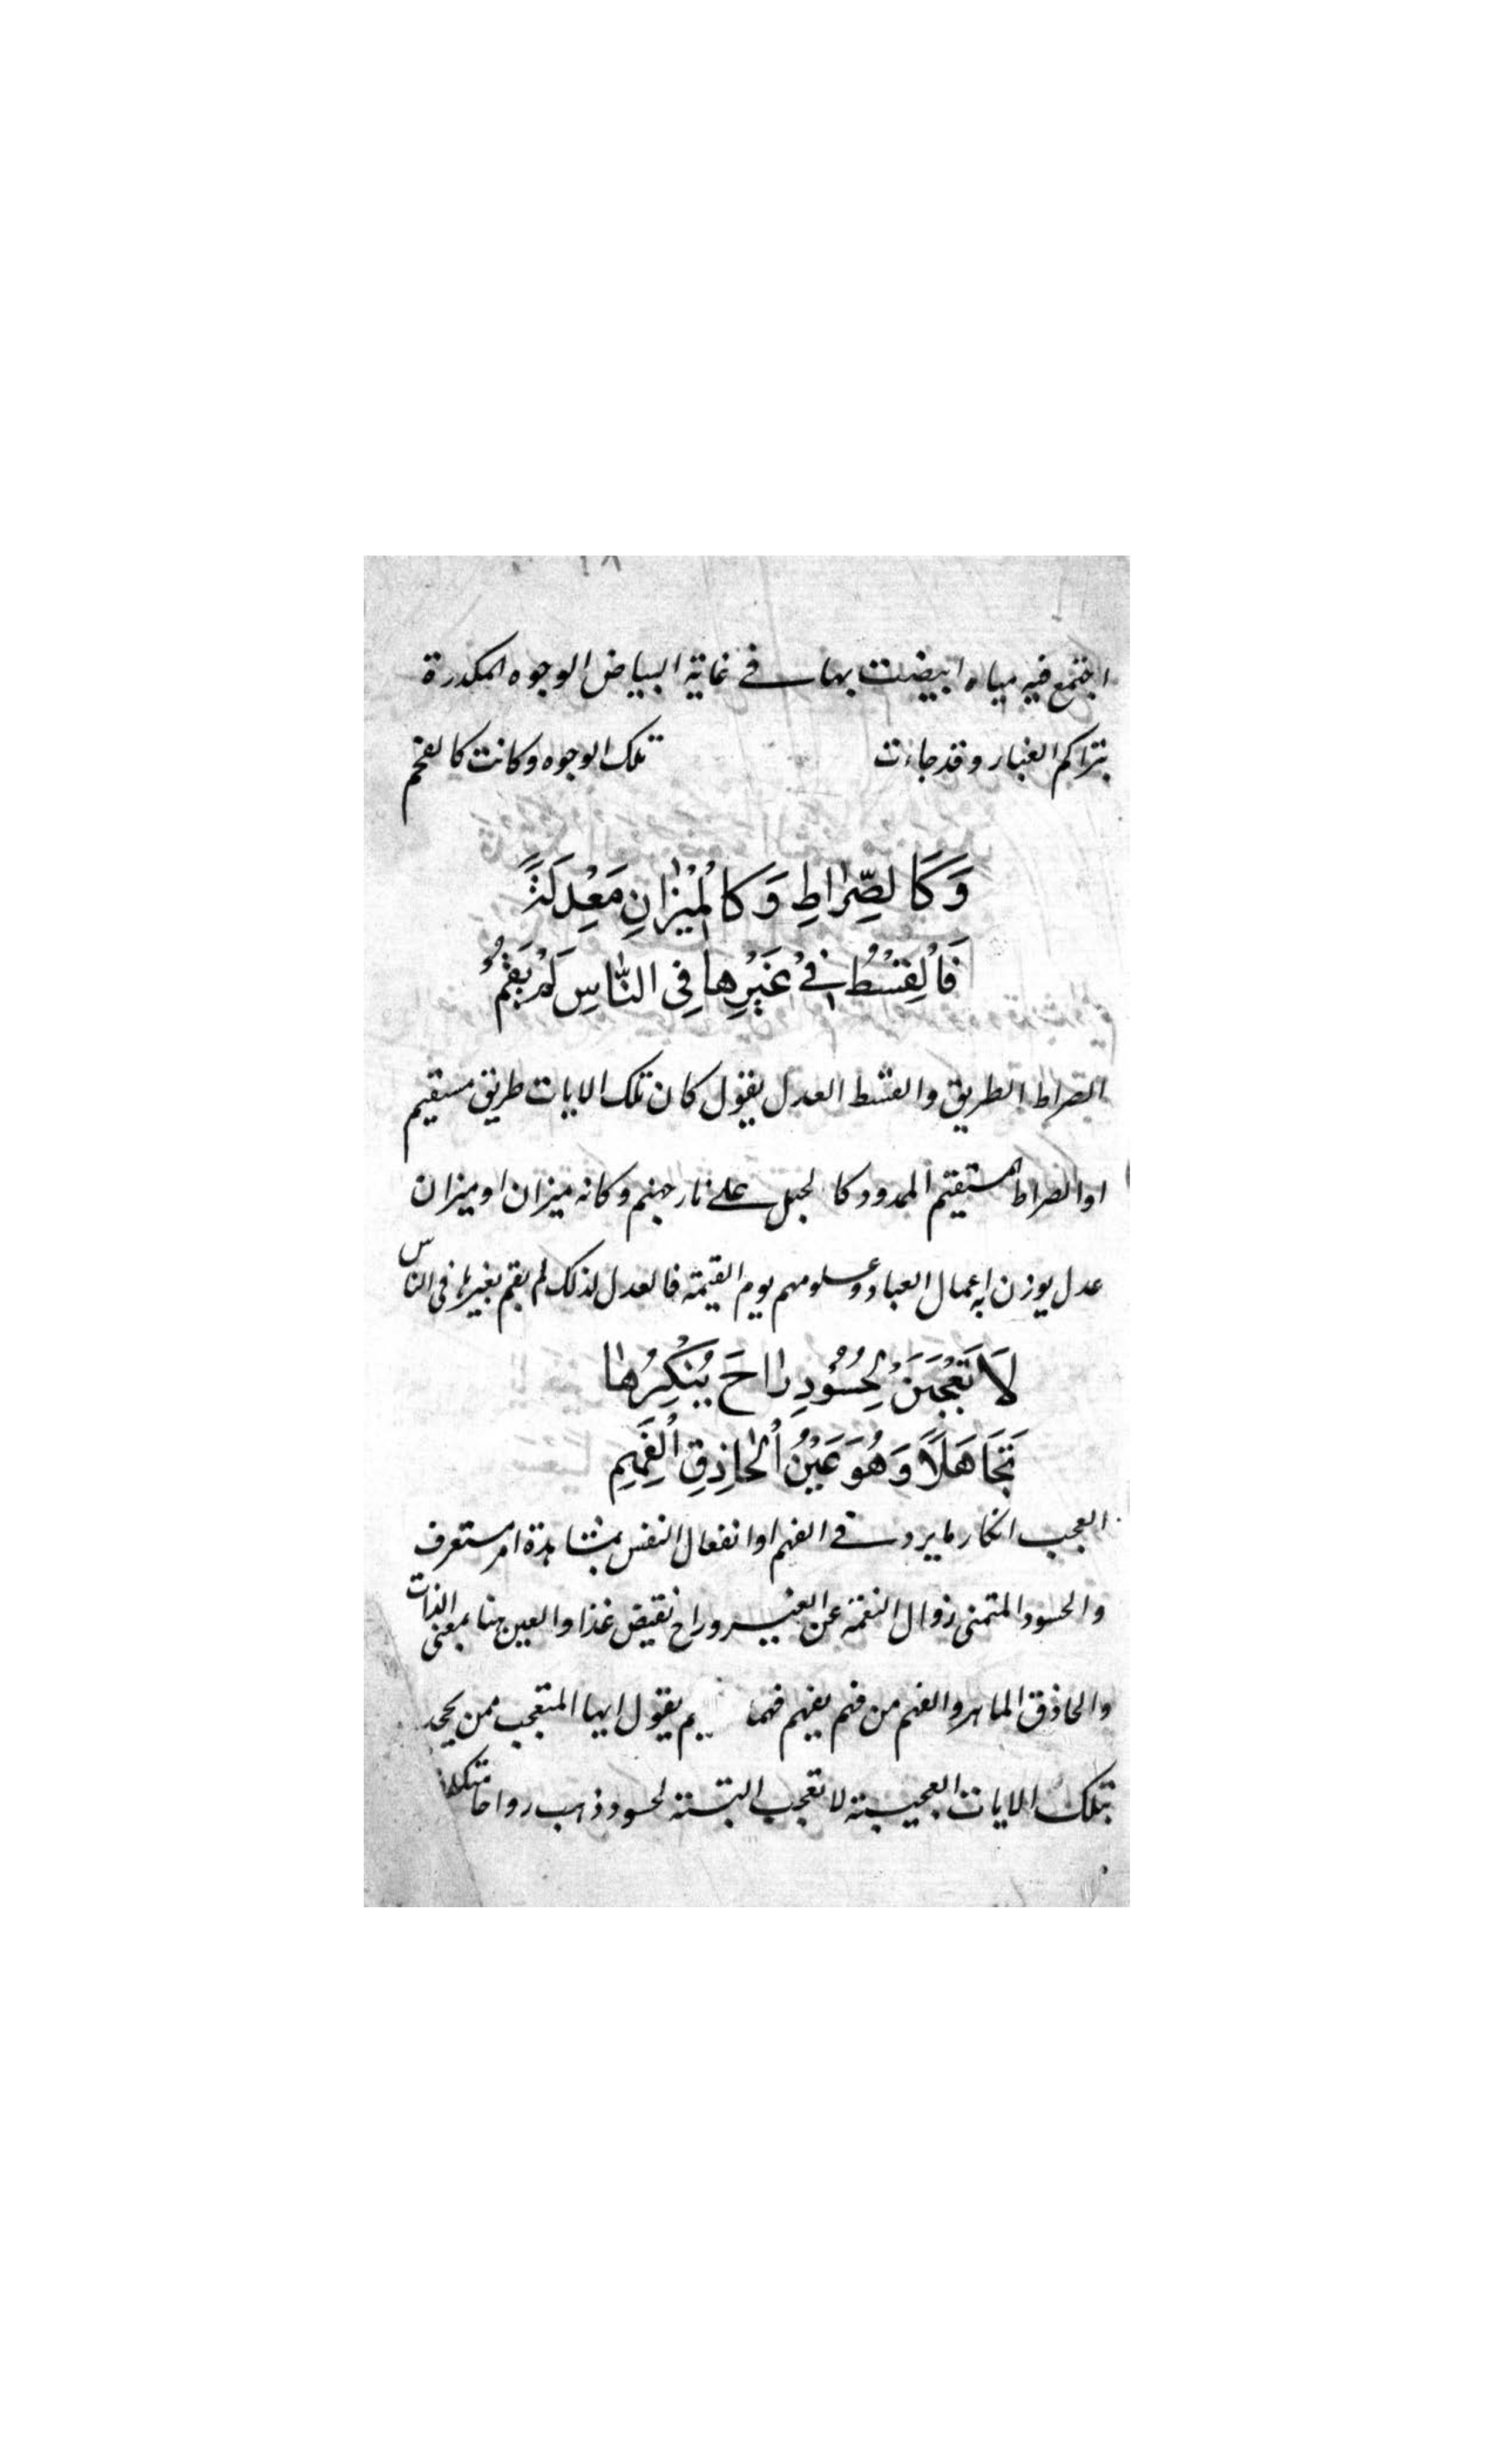 اجتمع فيه مياه ابيضت بها في غاية البياض الوجوه المكدرة
بتراكم الغبار وقد جاءت تلك الوجوه وكانت كالفحم
وَكَالصِّرَاطِ وَكَالْمِيْزَانِ مَعْدِلَةً
فَالْقِسْطُ فِيْ غَيْرِهَا فِى النَّاسِ لَمْ يَقُمْ
الصراط الطريق والقسط العدل يقول كان تلك الايات طريق مستقيم
او الصراط المستقيم الممدود كالجبل على نار جهنم وكانه ميزان او ميزان
عدل يوزن به اعمال العباد وعلومهم يوم القيمة فالعدل لذلك لم يقم بغيرها فى الناس
لَا تَعْجَبَنْ لِحَسُوْدٍ رَاحَ يُنْكِرُهَا
تَجَاهَلًا وَهُوَ عَيْنُ الْحَاذِقِ الْفَهِمِ
العجب انكار ما يرد في الفهم او انفعال النفس بمشاهدة امر مستعرف
والحسود المتمنى زوال النعمة عن الغير وراح نقيض غدا والعين هنا بمعنى الذات
والحاذق الماهر والفهم من فهم يفهم فهما يقول ايها المتعجب ممن يجحد
بتلك الايات العجيبة لا تعجب البتة لحسود ذهب رواحا